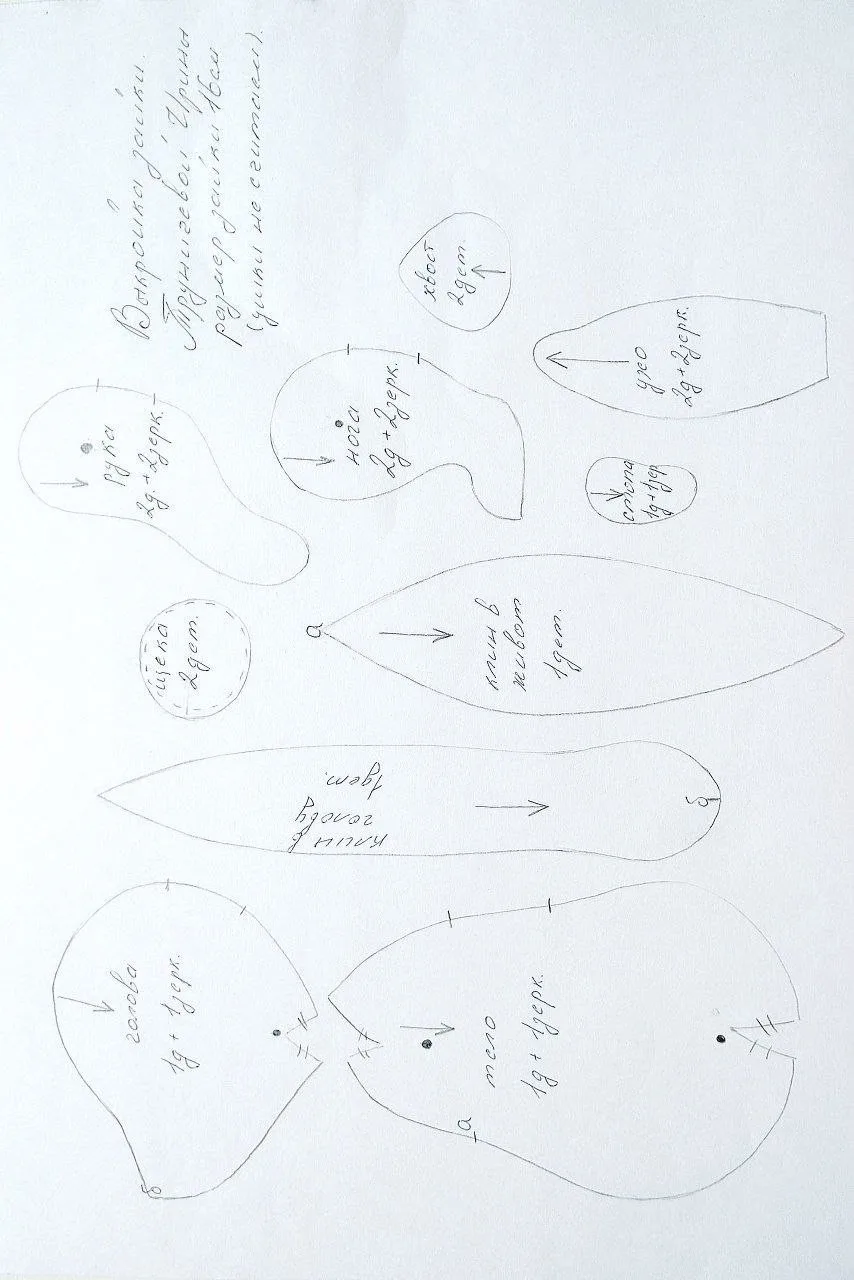 Выкройка зайки.
Трунигевой Ирины
размер зайки 16см
(ушки не считаем).
рука
2д.+2зерк.
нога
2д+2зерк.
хвост
2дет.
ухо
2д+2зерк.
стопа
1д+1зер
щека
2дет.
а
клин в
живот
1дет.
клин в
голову
1дет.
б
голова
1д + 1зерк.
б
тело
1д + 1зерк.
а